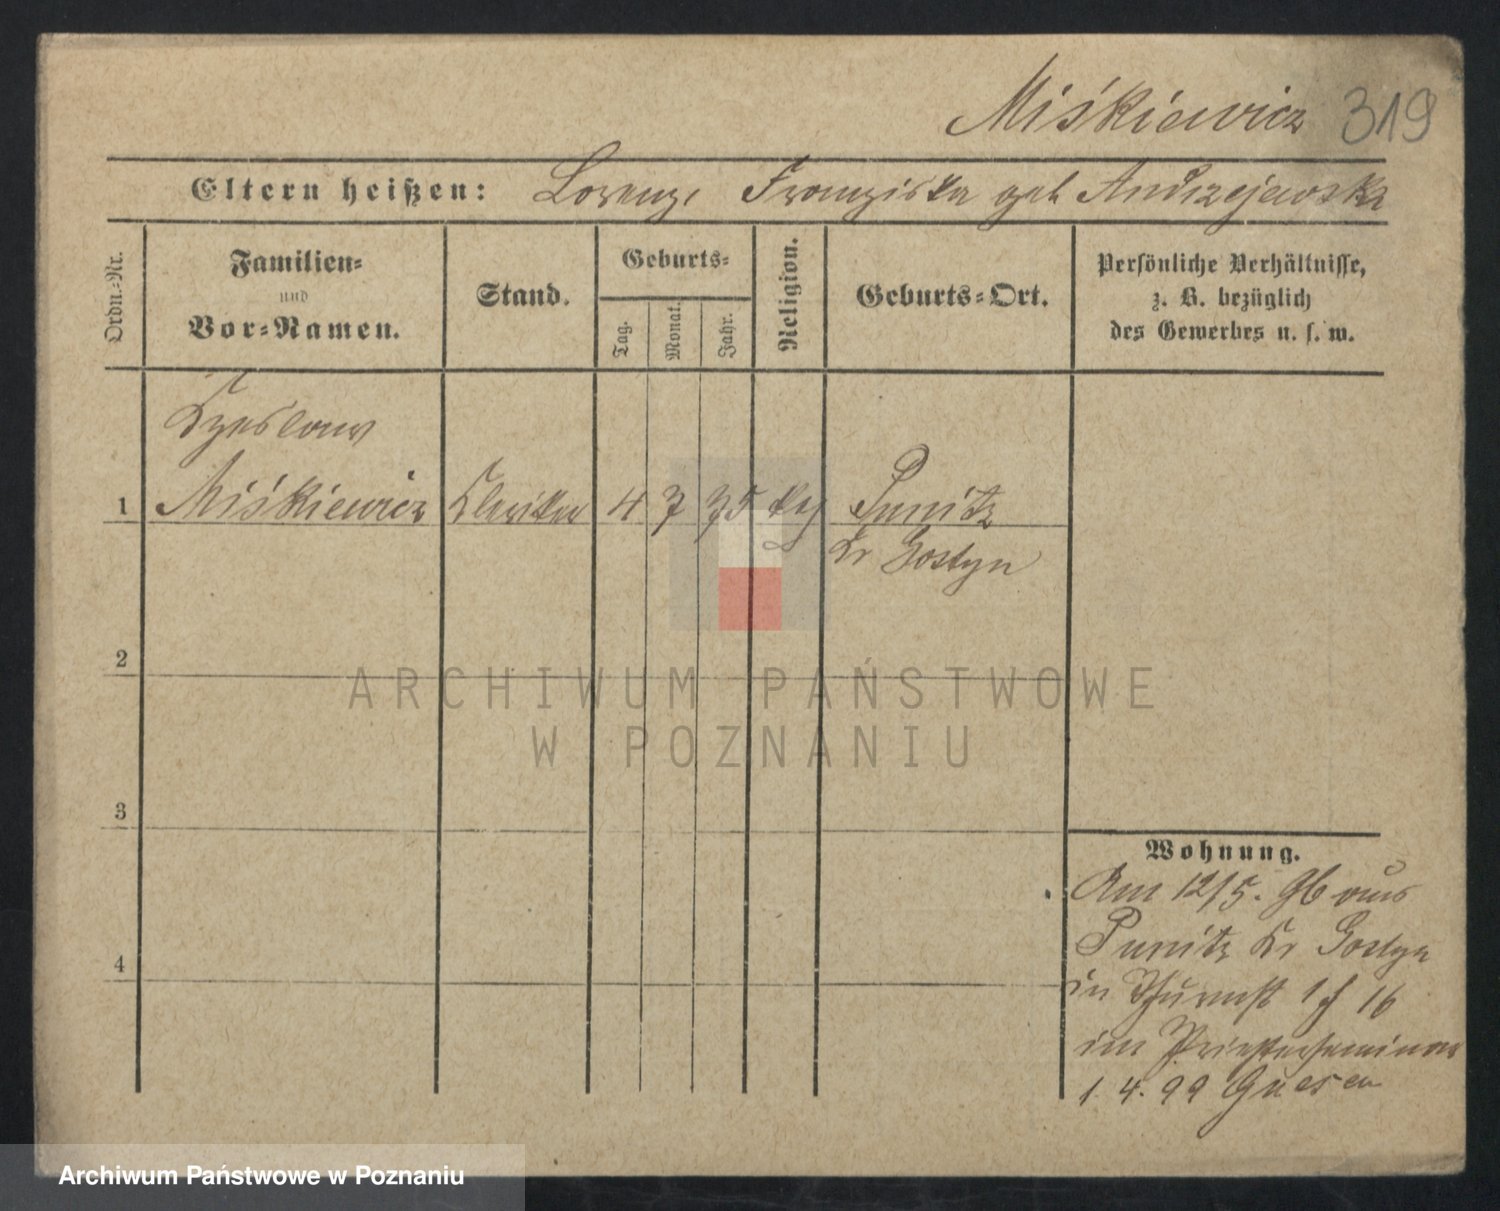 Miśkiewicz 319
Eltern heißen: Lorenz, Franziska geb Andrzejewski
Ordn.-Nr.
Familien-
und
Vor-Namen.
Stand.
Geburts-
Tag.
Monat.
Jahr.
Religion.
Geburts-Ort.
Persönliche Verhältnisse,
z. B. bezüglich
des Gewerbes u. s. w.
Czeslaus
1 Miśkiewicz Kleriker 4 7 75 Punitz
Kr Gostyn
2
3
4
Wohnung.
Am 12/5. 96 aus
Punitz Kr Gostyn
in Thurmstr 16
im Priesterseminar
1. 4. 99 Gnesen
ARCHIWUM PAŃSTWOWE
W POZNANIU
Archiwum Państwowe w Poznaniu